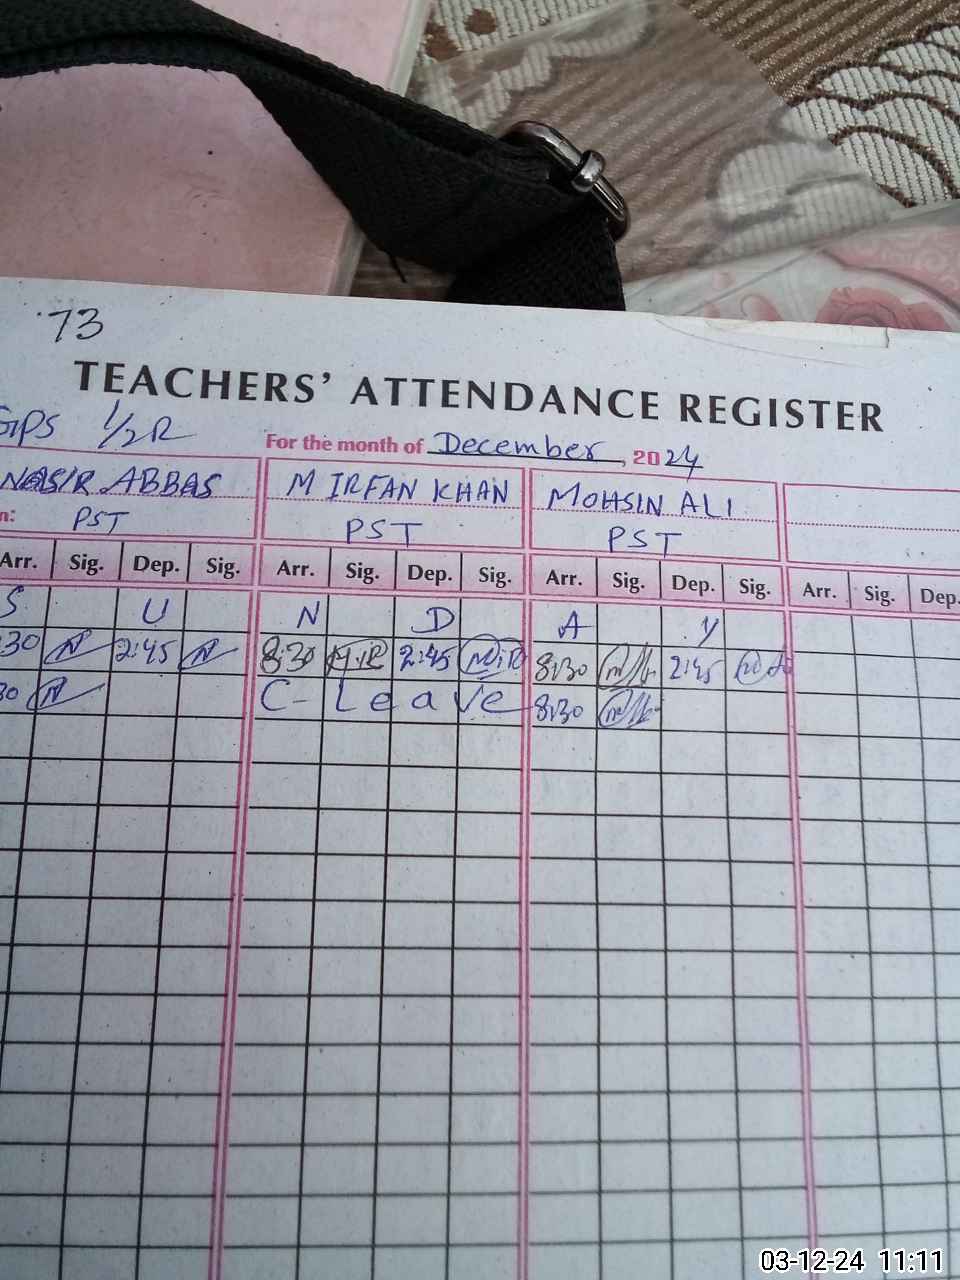 73
TEACHERS' ATTENDANCE REGISTER
GPS 1/2R
For the month of December, 2024
NASIR ABBAS M IRFAN KHAN MOHSIN ALI
n: PST PST PST
Arr. Sig. Dep. Sig. Arr. Sig. Dep. Sig. Arr. Sig. Dep. Sig. Arr. Sig. Dep.
S U N D A Y
:30 2:45 8:30 2:45 8:30 2:45
30 C- Leave 8:30
03-12-24 11:11